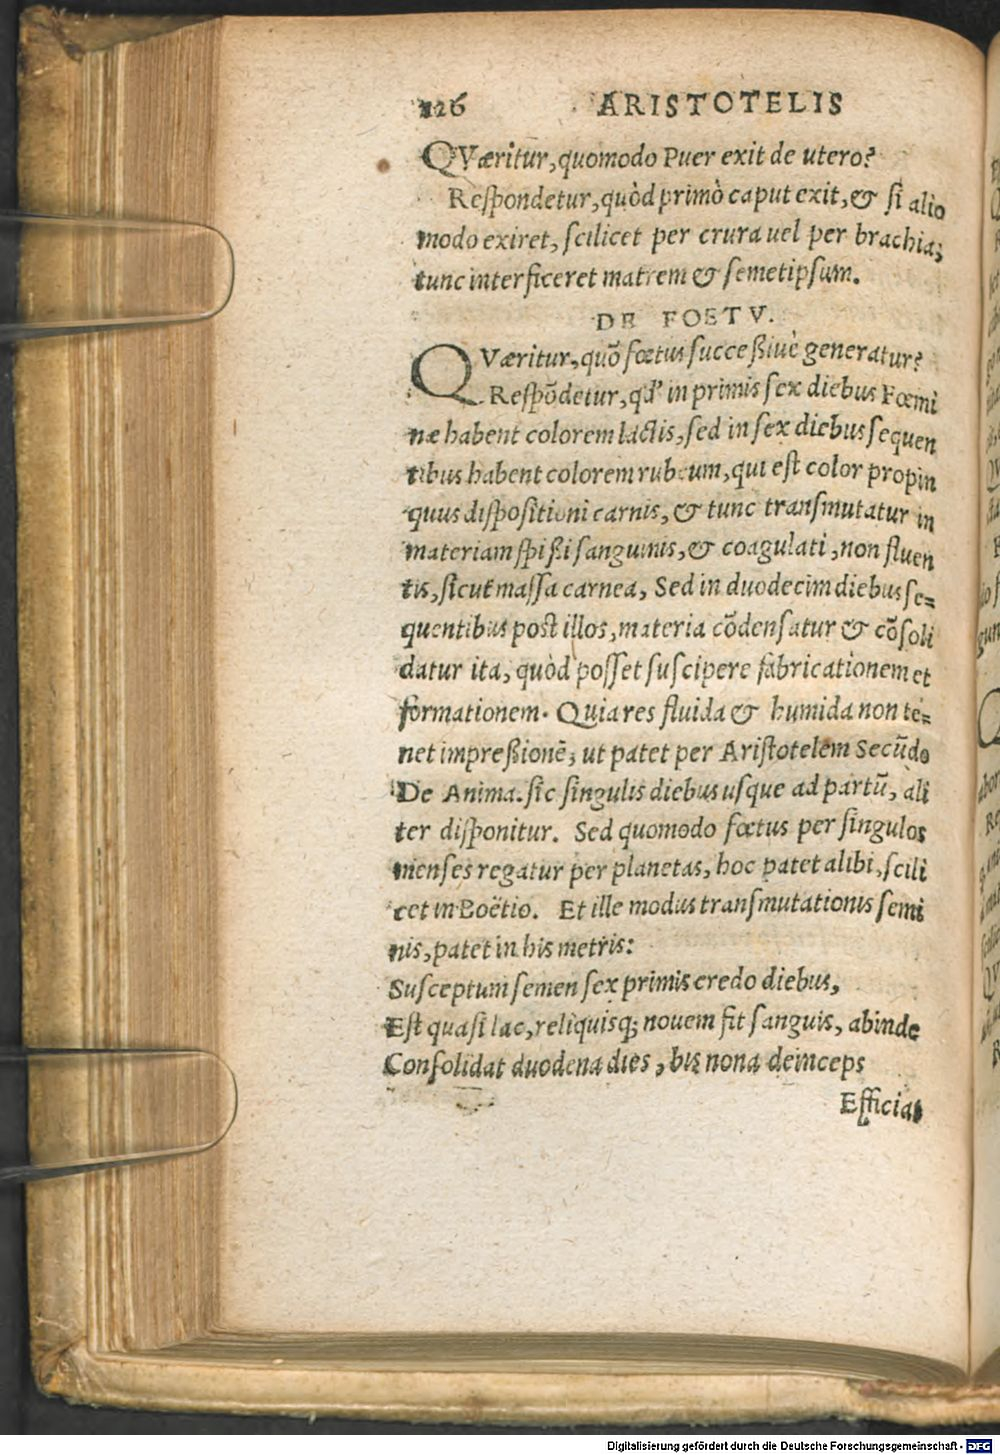 126 ARISTOTELIS
QVæritur, quomodo Puer exit de utero?
Reſpondetur, quòd primò caput exit, & ſi alio
modo exiret, ſcilicet per crura uel per brachia;
tunc interficeret matrem & ſemetipſum.
DE FOETV.
QVæritur, quō fœtus ſucceßiuè generatur?
Reſpōdetur, qd' in primis ſex diebus Fœmi
næ habent colorem lactis, ſed in ſex diebus ſequen
tibus habent colorem rubeum, qui eſt color propin
quus diſpoſitioni carnis, & tunc tranſmutatur in
materiam ſpißi ſanguinis, & coagulati, non fluen
tis, ſicut maſſa carnea, Sed in duodecim diebus ſe=
quentibus post illos, materia cōdenſatur & cōſoli
datur ita, quòd poſſet ſuſcipere fabricationem et
formationem. Quia res fluida & humida non te=
net impreßionē, ut patet per Ariſtotelem Secūdo
De Anima. ſic ſingulis diebus uſque ad partū, ali
ter diſponitur. Sed quomodo fœtus per ſingulos
menſes regatur per planetas, hoc patet alibi, ſcili
cet in Boëtio. Et ille modus tranſmutationis ſemi
nis, patet in his metris:
Suſceptum ſemen ſex primis credo diebus,
Eſt quaſi lac, reliquisq; nouem fit ſanguis, abinde
Conſolidat duodena dies, bis nona deinceps
Efficiat
Digitalisierung gefördert durch die Deutsche Forschungsgemeinschaft - DFG